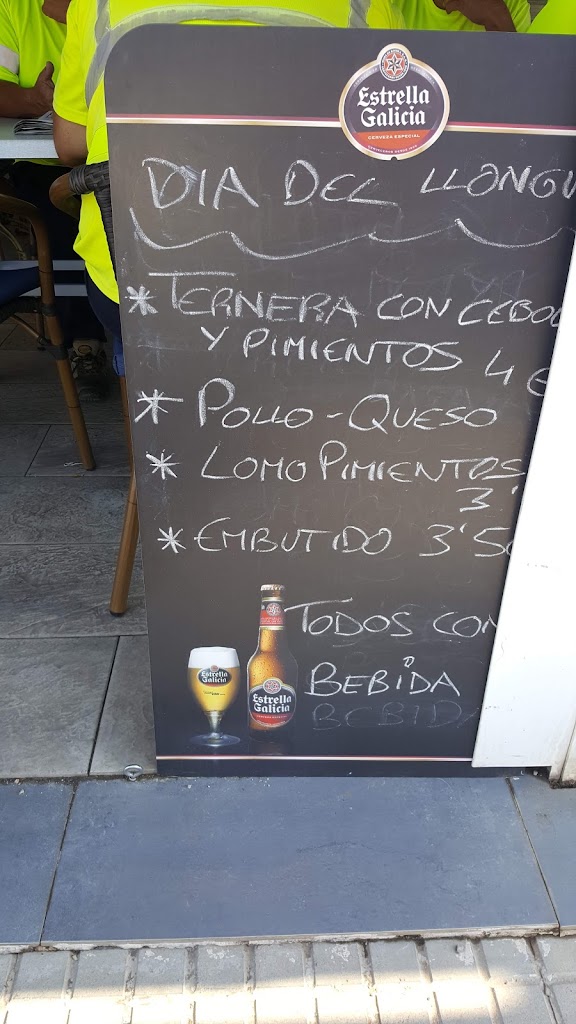 Estrella
Galicia
CERVEZA ESPECIAL
DIA DEL LLONGU
* TERNERA CON CEBO
Y PIMIENTOS 4 €
* POLLO - QUESO
* LOMO PIMIENTOS
3'
* EMBUTIDO 3'50
TODOS CON
BEBIDA
BEBIDA
Estrella
Galicia
Estrella
Galicia